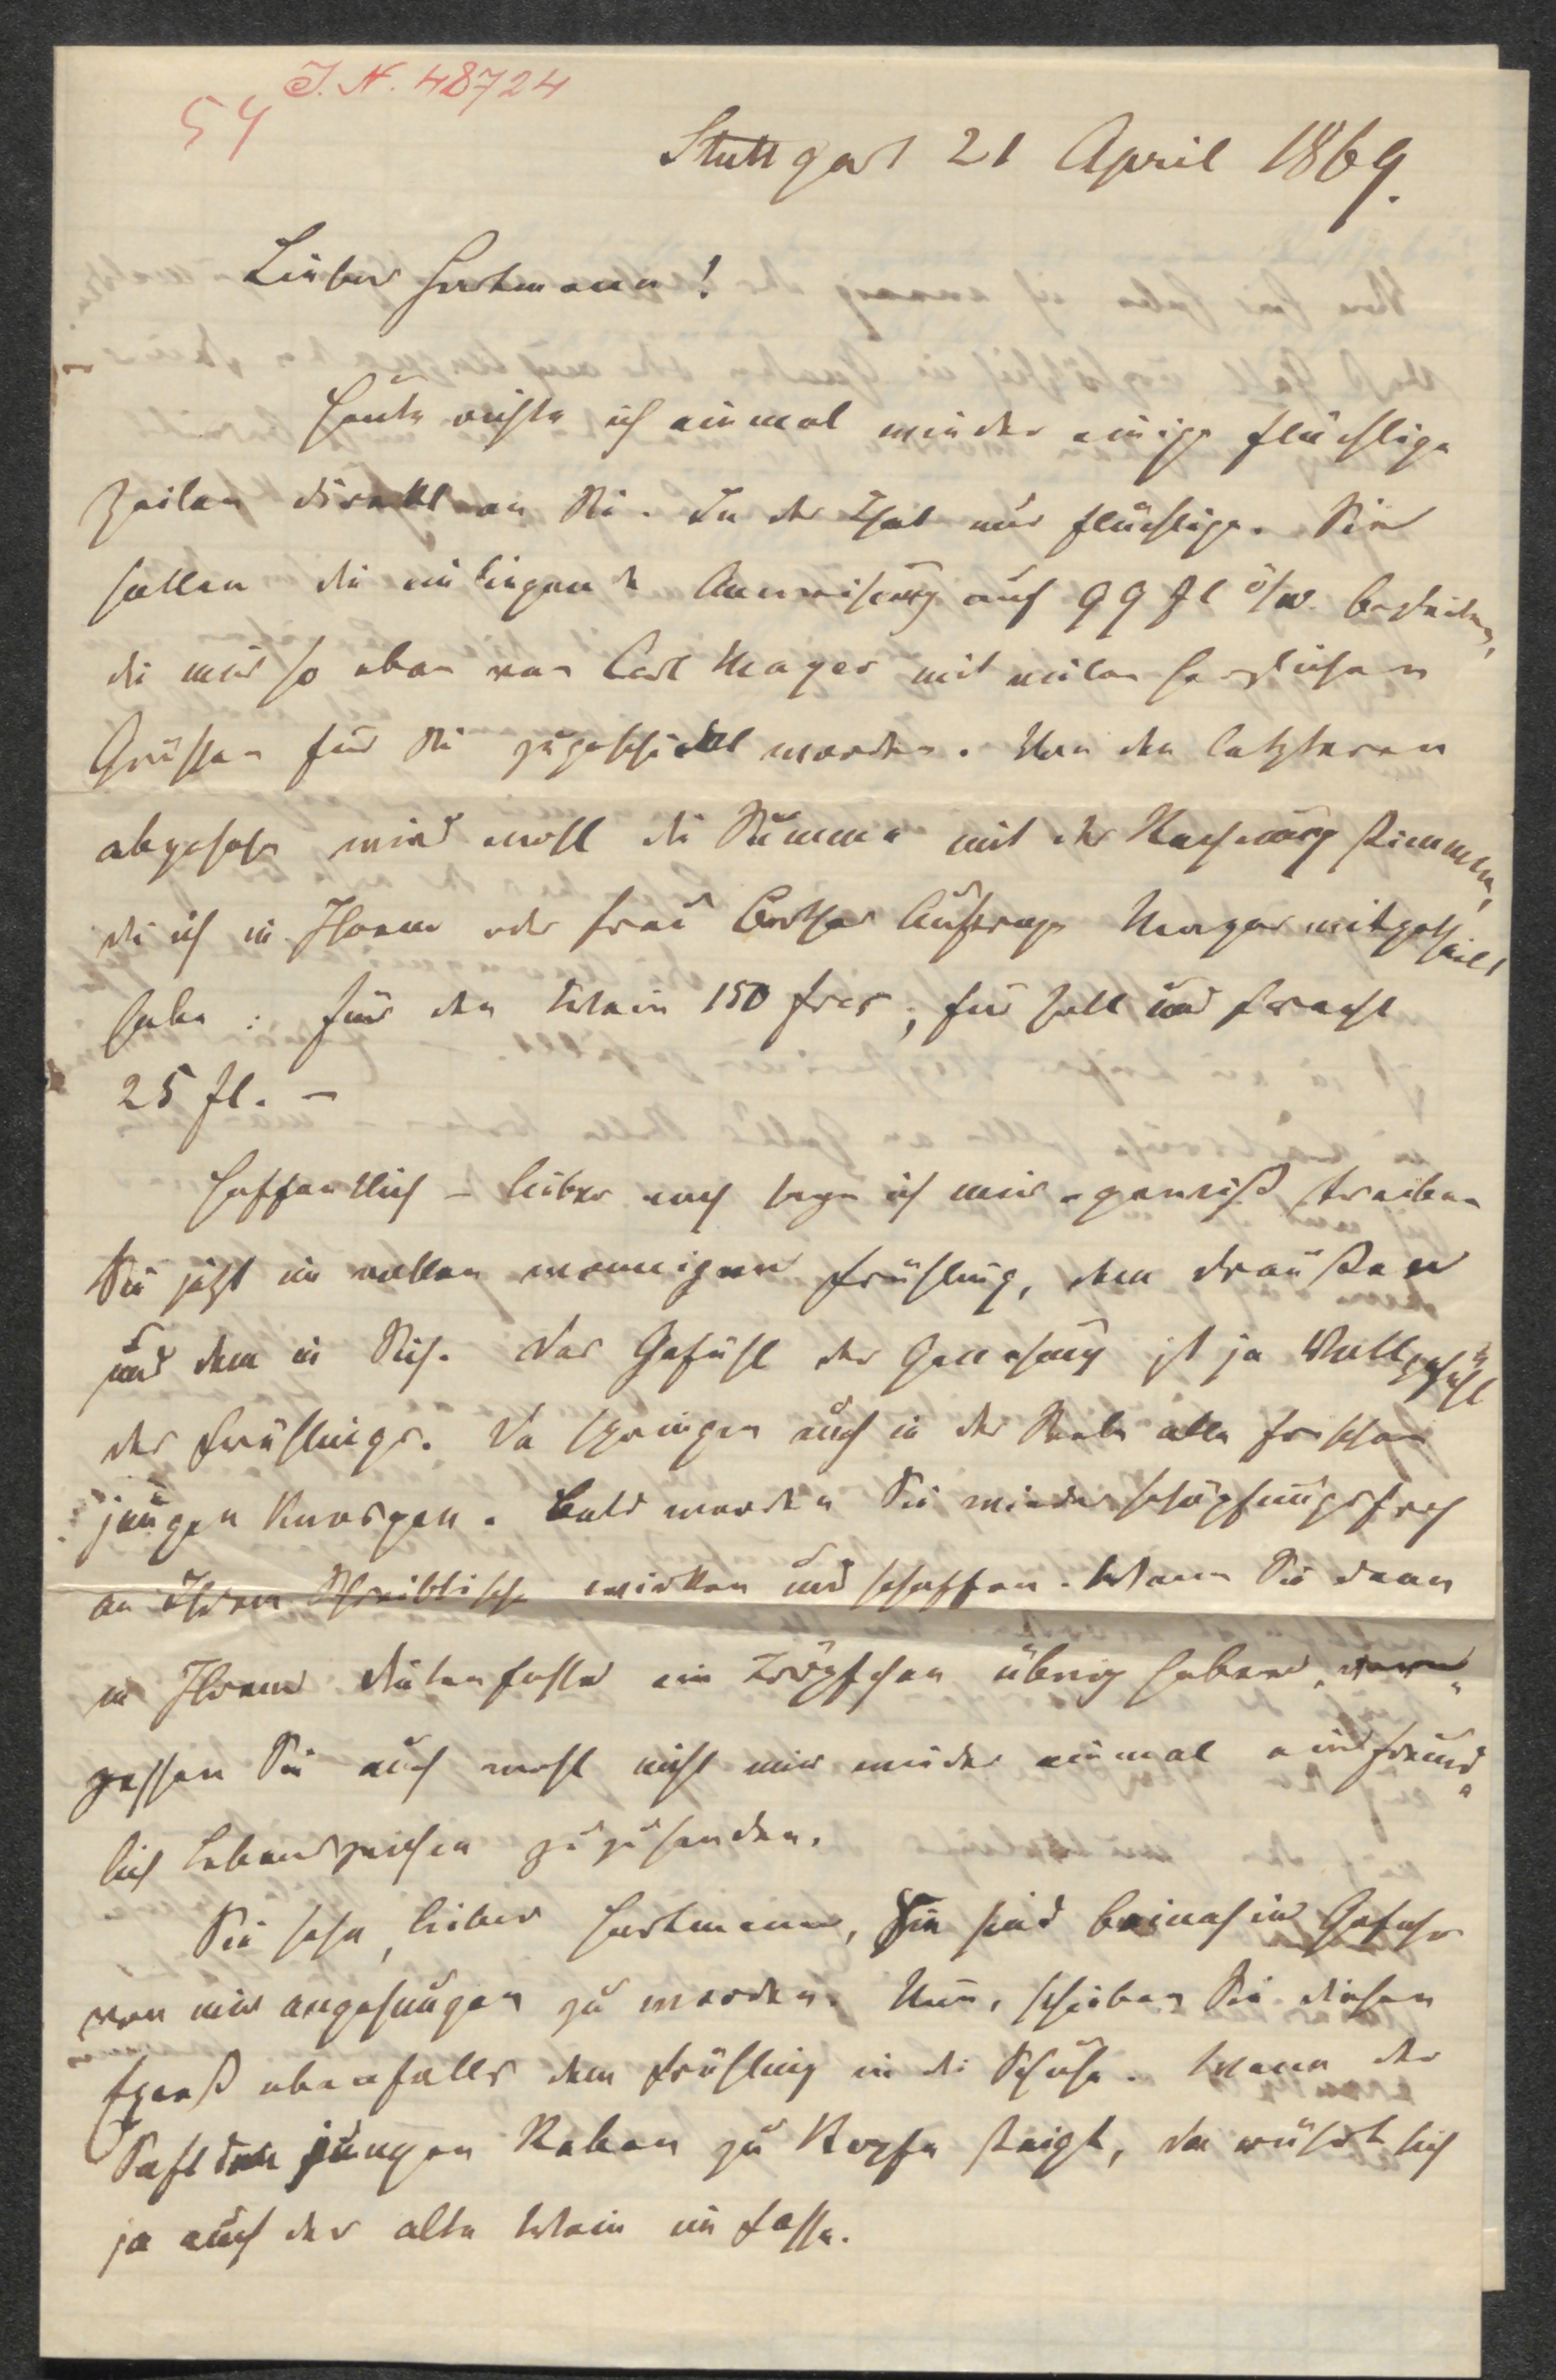 J. N. 48724
54
Stuttgart 21 April 1869.
Lieber Hartmann!
Heute richte ich einmal wieder einige flüchtige
Zeilen direkt an Sie. In der That nur flüchtige. Sie
sollen die einliegende Anweisung auf 99 fl ö/w. begleiten,
die mir so eben von Carl Mayer mit vielen herzlichen
Grüssen für Sie zugeschickt worden. Von den letzteren
abgesehen wird wohl die Summe mit der Rechnung stimmen,
die ich in Ihrem oder Frau Berthas Auftrage Mayer mitgetheilt
habe: für den Wein 150 frcs, für Zoll und Fracht
25 fl. –
Hoffentlich – lieber noch sage ich mir – gewiß treiben
Sie jetzt im vollen wonnigen Frühling, dem draußen
und dem in Sich. Das Gefühl der Genesung ist ja Vollgefühl
des Frühlings. Da springen auch in der Seele alle frischen
jungen Knospen. Bald werden Sie wieder schöpfungsfroh
an Ihrem Schreibtische wirken und schaffen. Wenn Sie dann
in Ihrem Dintenfasse ein Tröpfchen übrig haben, ver-
gessen Sie auch wohl nicht mir wieder einmal ein freund-
lich Lebenszeichen zuzusenden.
Sie sehn, lieber Hartmann, Sie sind beinah in Gefahr
von mir angesungen zu werden. Nun, schieben Sie diesen
Spaß ebenfalls dem Frühling in die Schuhe. Wenn der
Saft den jungen Reben zu Kopfe steigt, da rührt sich
ja auch der alte Wein im Fasse.